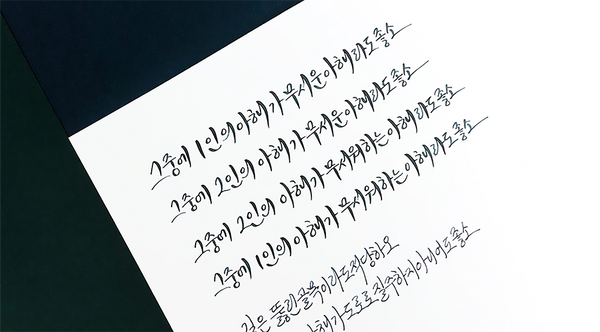 그중에 1인의 아해가 무서운아해라도좋소
그중에 2인의 아해가 무서운아해라도좋소
그중에 2인의 아해가 무서워하는아해라도좋소
그중에 1인의 아해가 무서워하는아해라도좋소
길은 뚫린골목이라도적당하오
아해가도로로질주하지아니하여도좋소